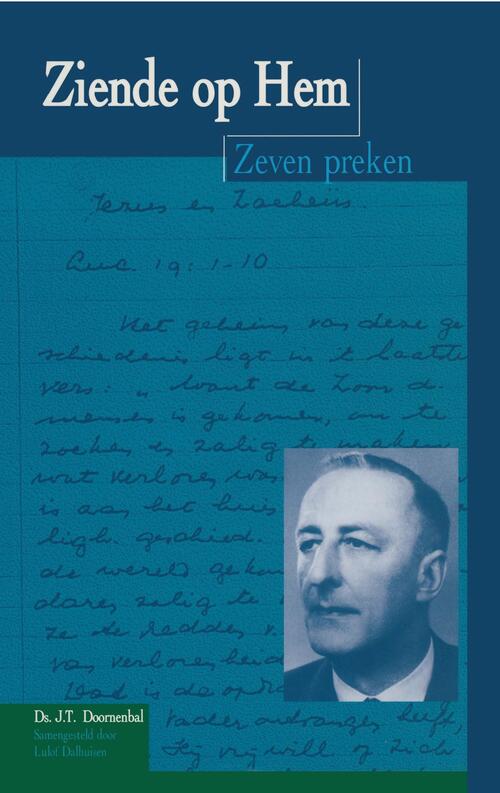 Ziende op Hem
Zeven preken
Jezus en Zacheüs.
Luc. 19:1-10
Het geheim van deze ge
schiedenis ligt in 't laatste
vers: „Want de Zoon d.
mensen is gekomen, om te
zoeken en zalig te maken
wat verloren was
is aan het huis
ligh. geschied.
de wereld geko
zalig te
ze de redder v.
van verlorenheid
Wad is de
Vader ontvangen heeft,
Hij vrijwill. of zich
Ds. J.T. Doornenbal
Samengesteld door
Lulof Dalhuisen